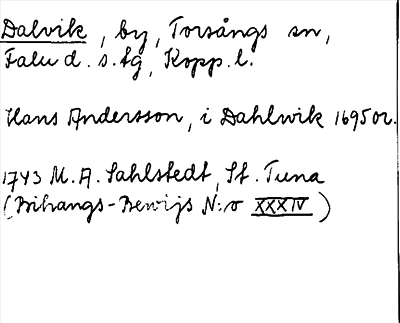 Dalvik, by, Torsångs sn,
Falu d. s. tg, Kopp. l.
Hans Andersson, i Dahlwik 1695 or.
1743 M. A. Sahlstedt, St. Tuna
(Bihangs-Bewijs N:o XXXIV)